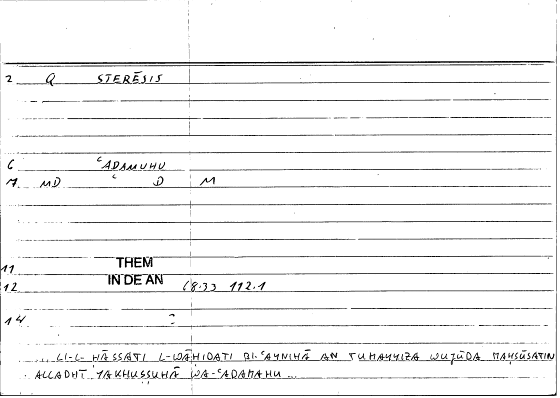 2 Q STERĒSIS
6 ʿADAMUHU
7 MD ʿ D M
11 THEM
12 IN DE AN 68.33 112.1
14 ?
... LI-L-ḤĀSSATI L-WĀḤIDATI BI-ʿAYNIHĀ AN TUMAYYIZA WUJŪDA MAḤSŪSATIN
ALLADHĪ YAKHUSSUHĀ WA-ʿADAMAHU ...